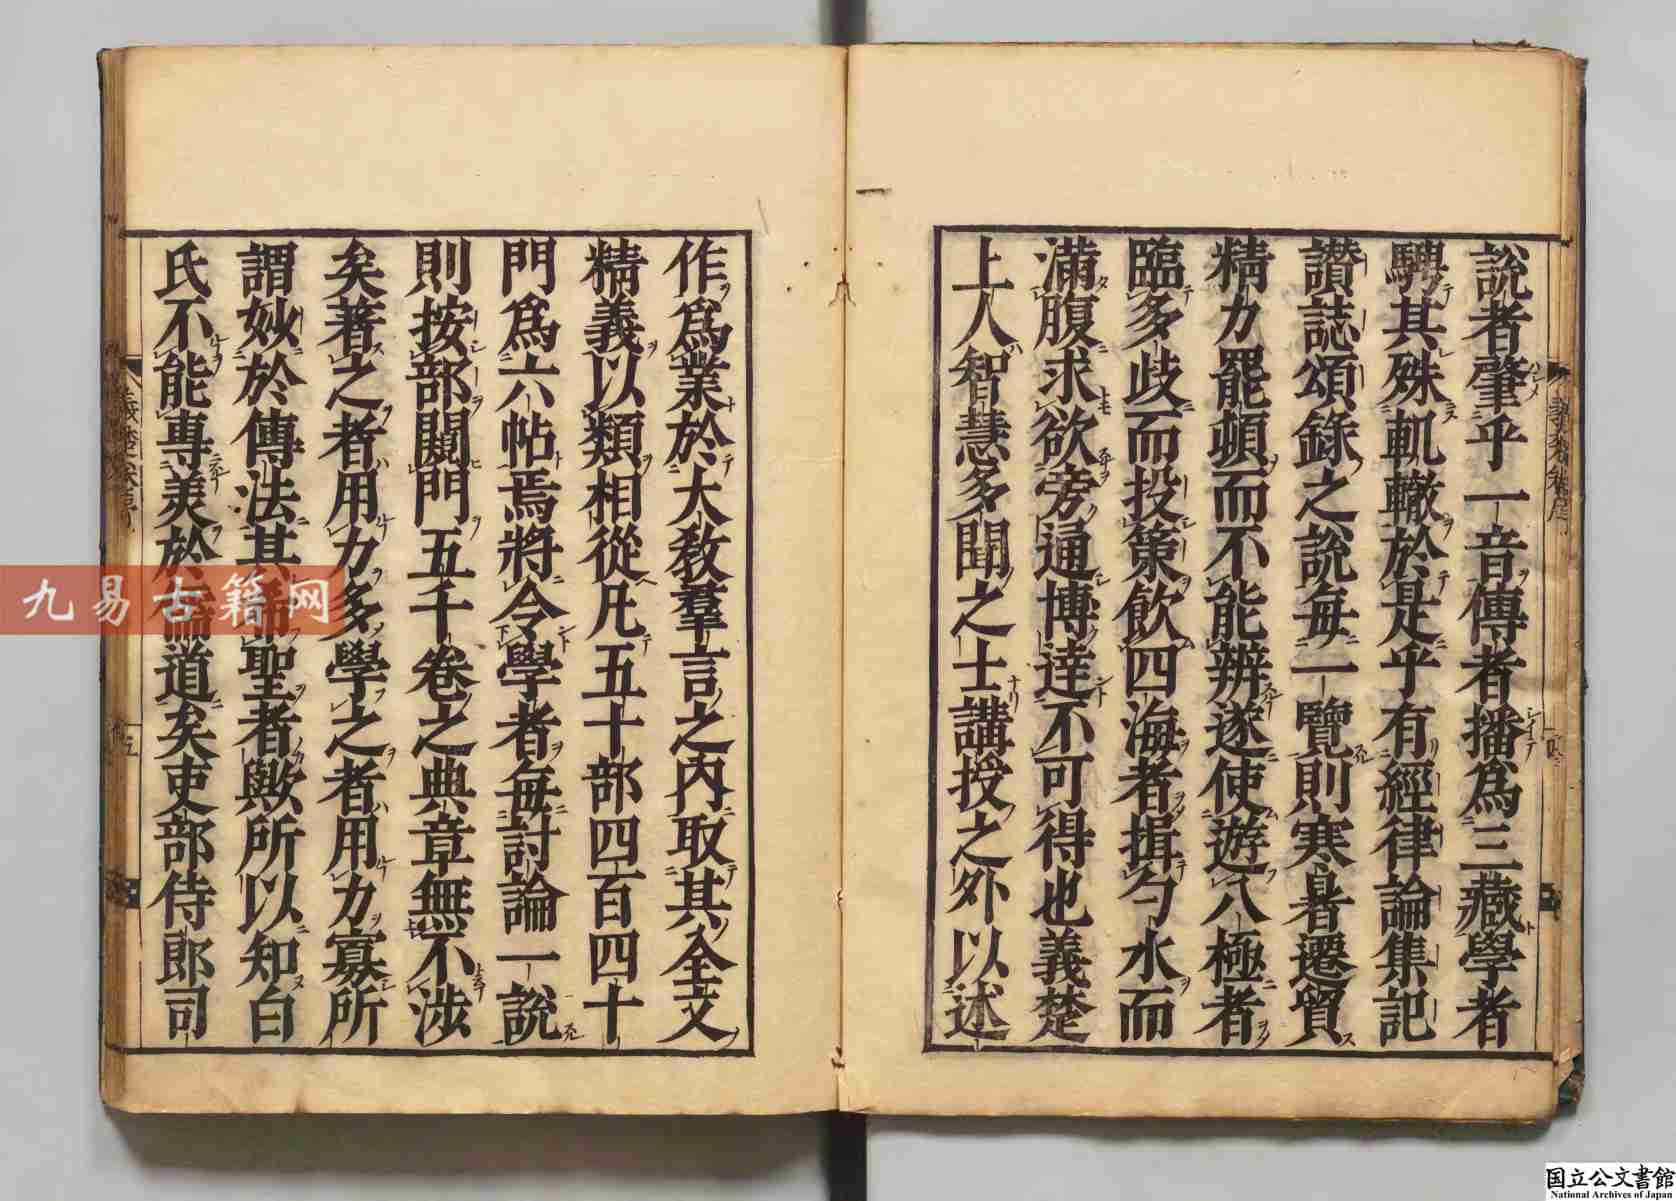 說者肇乎一音傳者播爲三藏學者
騁其殊軌轍於是乎有經律論集記
讃誌頌錄之說每一覽則寒暑遷貿
精力罷頓而不能辨遂使遊八極者
臨多歧而投策飲四海者揖勺水而
滿腹求欲旁通博達不可得也義楚
上人智慧多聞之士講授之外以述
作爲業於大教羣言之內取其全文
精義以類相從凡五十部四百四十
門爲六帖焉將令學者每討論一說
則按部閱門五千卷之典章無不涉
矣著之者用力多學之者用力寡所
謂妙於傳法其聖者歟所以知白
氏不能專美於道矣吏部侍郎司
九易古籍网
国立公文書館
National Archives of Japan